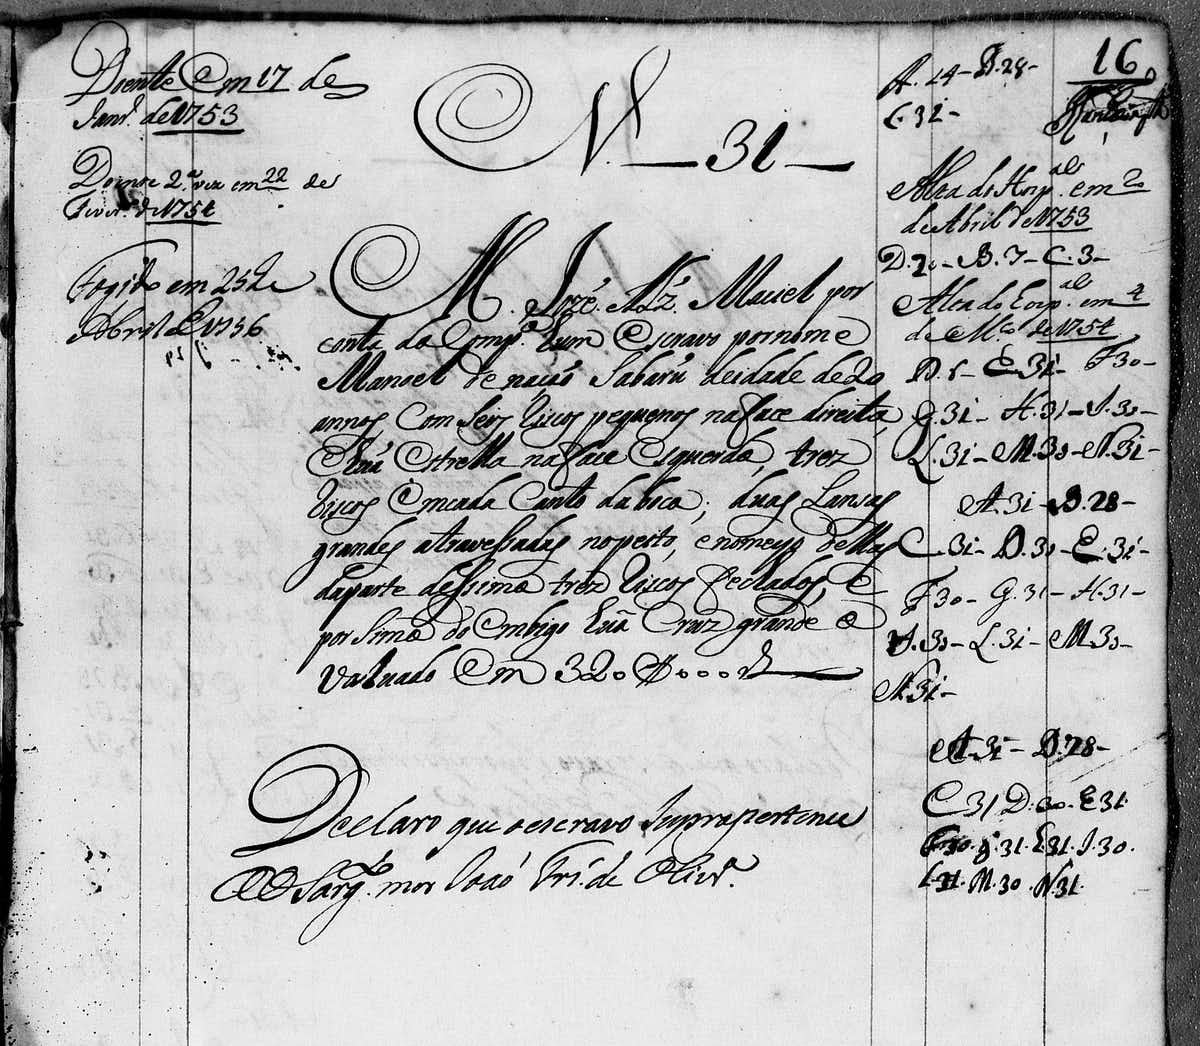 Doente Em 17 de
Janr.º de 1753
Doente 2.ª vez em 22 de
Fever.º de 1754
Fogido em 25 de
Abril de 1756
N.º 31
M. José Alz.' Maciel por
conta da Comp.ª hum Escravo por nome
Manoel de nação Sabarú de idade de 20
annos Com Seos riscos pequenos na face direita,
E húa Estrella na face Esquerda, trez
riscos Em cada Canto da boca; duas Lansas
grandes atravessadas no peito, e no meyo dellas
da parte de Sima trez riscos fechados, e
por Sima do Embigo húa Cruz grande e
valuado Em 320$000 rs
Declaro que o escravo Supra pertence
Ao Sarg.to mor João Frz.' de Olivr.ª
16
A. 14 - B. 28 -
C. 31 -
Alta do Hosp.al em 20
de Abril de 1753
D. 20 - B. 7 - C. 3 -
Alta do Hosp.al em 4
de M.ço de 1754
D. 5 - E. 31 - F. 30 -
G. 31 - H. 31 - I. 30 -
L. 31 - M. 30 - N. 31 -
A. 31 - B. 28 -
C. 31 - D. 30 - E. 31 -
F. 30 - G. 31 - H. 31 -
I. 30 - L. 31 - M. 30 -
N. 31 -
A. 31 - B. 28 -
C 31 D. 30. E 31.
F 30. g. 31. H 31. I. 30.
L 31. M. 30. N 31.